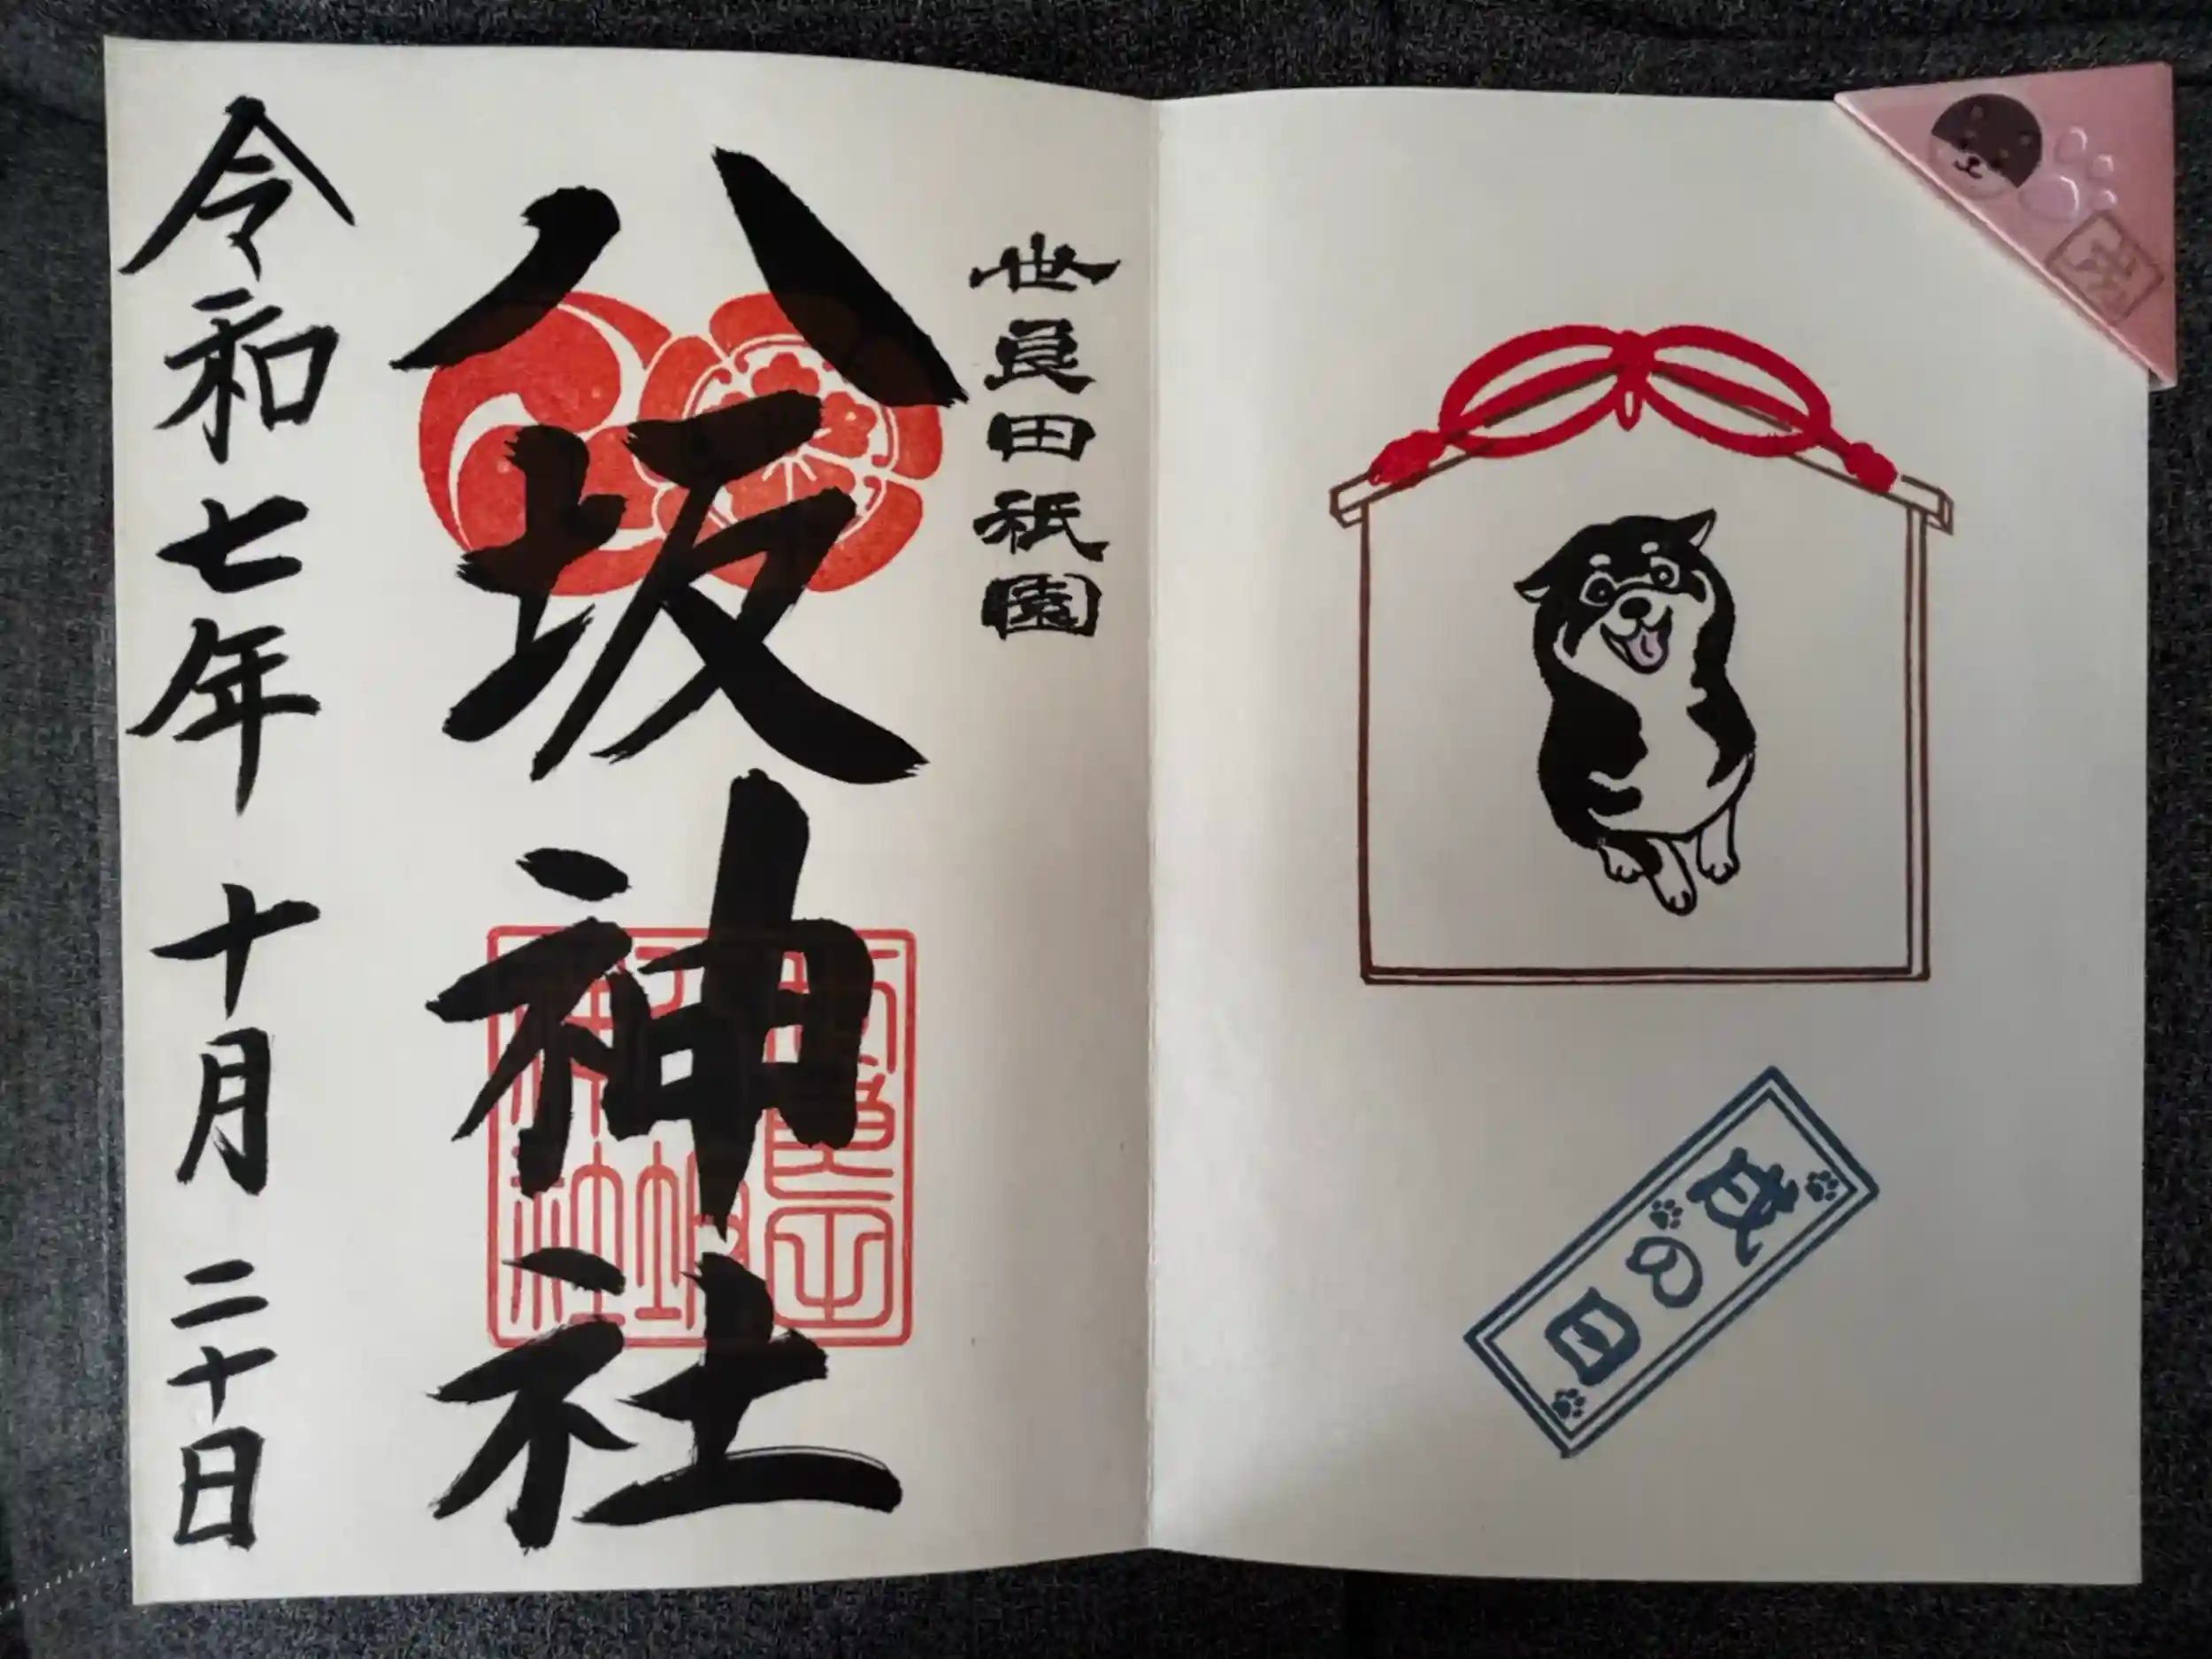 戌
戌の日
世良田祇園
八坂神社
令和七年 十月 二十日